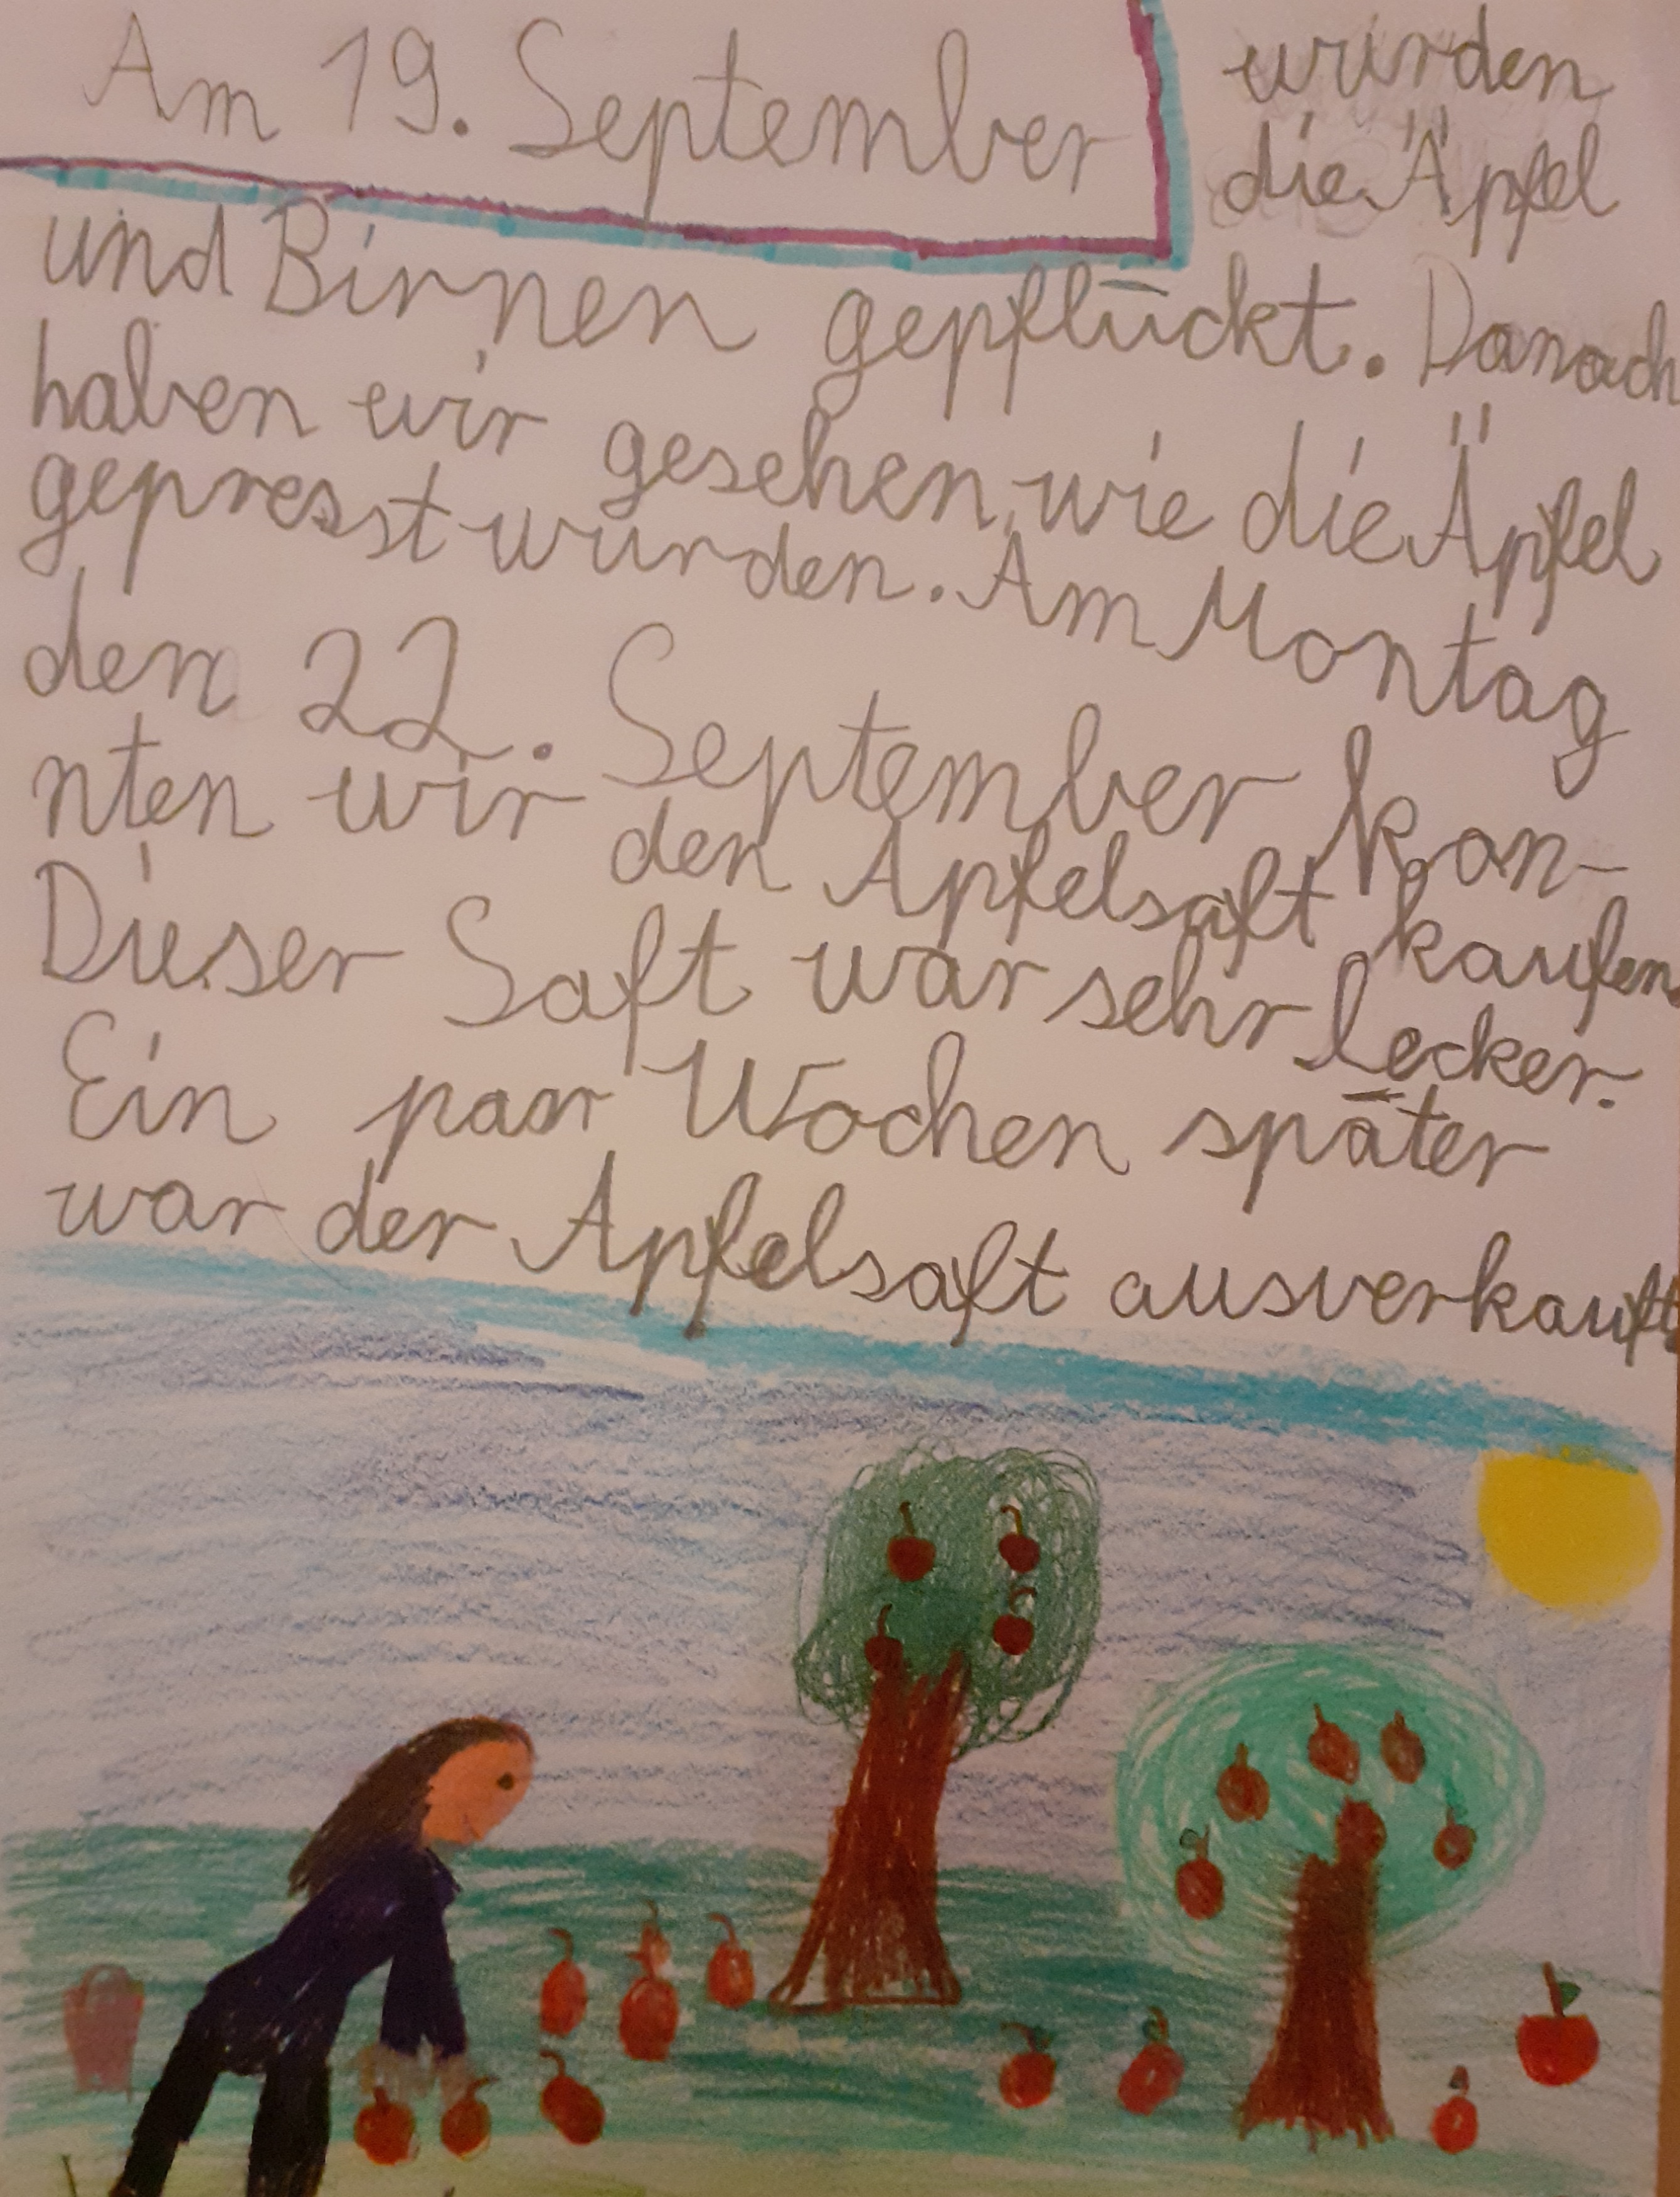 Am 19. September wurden
die Äpfel
und Birnen gepflückt. Danach
haben wir gesehen, wie die Äpfel
gepresst wurden. Am Montag
den 22. September kon-
nten wir den Apfelsaft kaufen.
Dieser Saft war sehr lecker.
Ein paar Wochen später
war der Apfelsaft ausverkauft